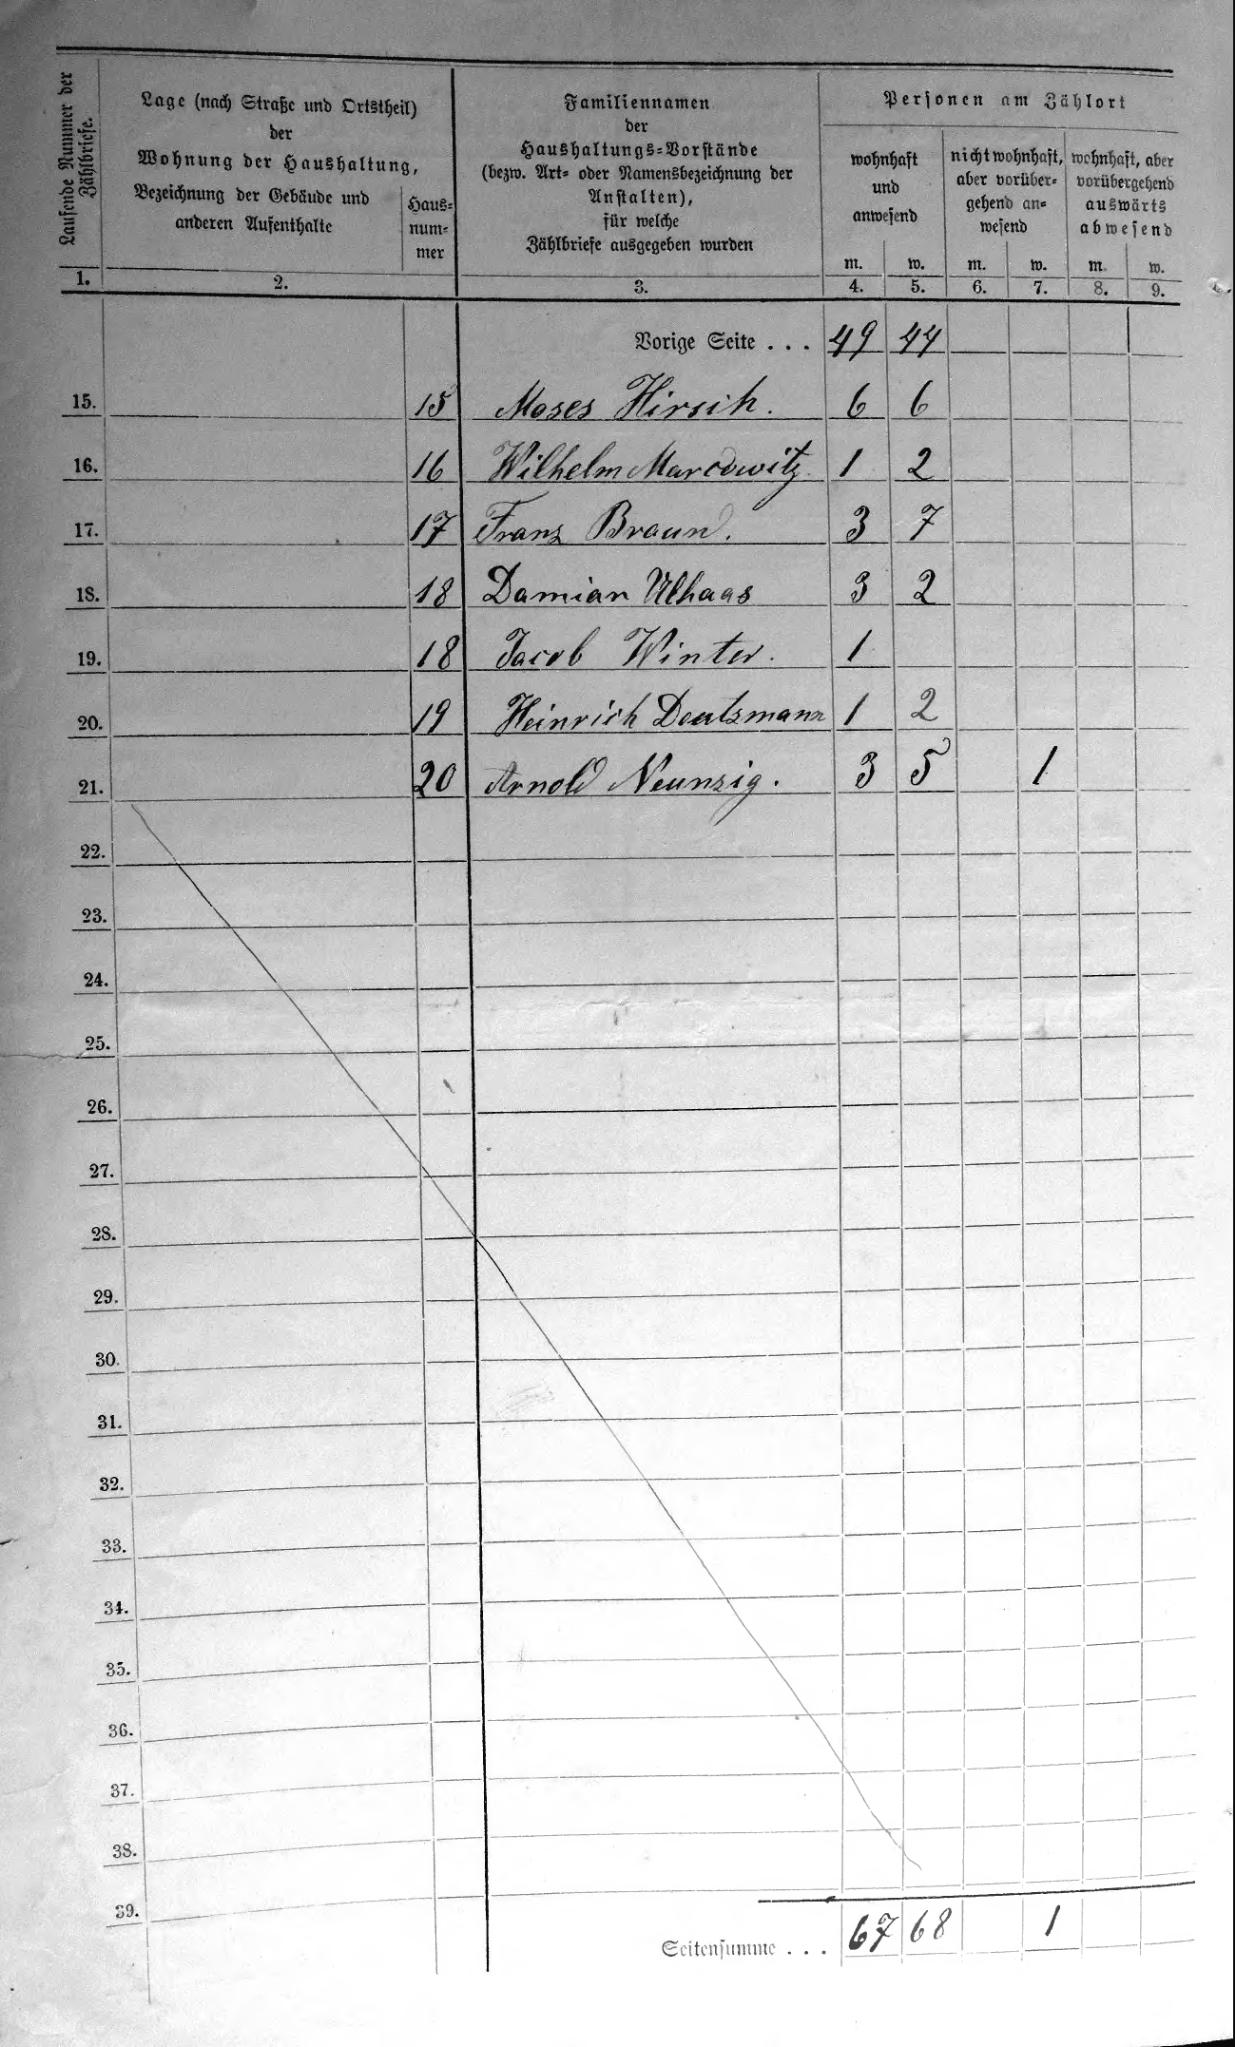 Laufende Nummer der Zählbriefe.
Lage (nach Straße und Ortstheil)
der
Wohnung der Haushaltung,
Bezeichnung der Gebäude und
anderen Aufenthalte
Haus=
num=
mer
Familiennamen
der
Haushaltungs=Vorstände
(bezw. Art= oder Namensbezeichnung der
Anstalten),
für welche
Zählbriefe ausgegeben wurden
Personen am Zählort
wohnhaft
und
anwesend
nicht wohnhaft,
aber vorüber=
gehend an=
wesend
wohnhaft, aber
vorübergehend
auswärts
abwesend
m. w. m. w. m. w.
1. 2. 3. 4. 5. 6. 7. 8. 9.
Vorige Seite . . . 49 44
15. 15 Moses Hirsch. 6 6
16. 16 Wilhelm Marcowitz. 1 2
17. 17 Franz Braun. 3 7
18. 18 Damian Ulhaas 3 2
19. 18 Jacob Winter. 1
20. 19 Heinrich Deutzmann 1 2
21. 20 Arnold Neunzig. 3 5 1
22.
23.
24.
25.
26.
27.
28.
29.
30.
31.
32.
33.
34.
35.
36.
37.
38.
39.
Seitensumme . . . 67 68 1